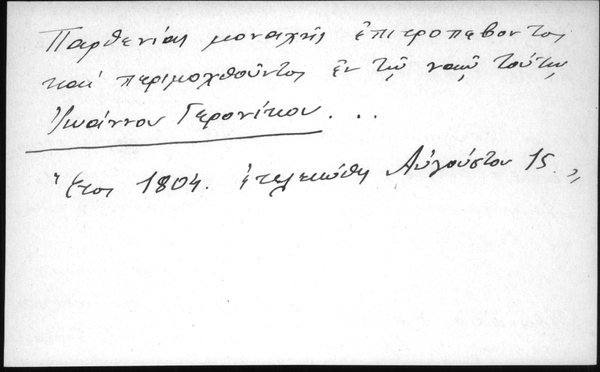 Παρθενίας μοναχῆς ἐπιτροπεβοντος
καί περιμοχθοῦντος ἐν τῷ ναῷ τούτῳ
Ἰωάννου Γερονίκου...
Ἔτος 1804. ἐτελειώθη Αὐγούστου 15.»